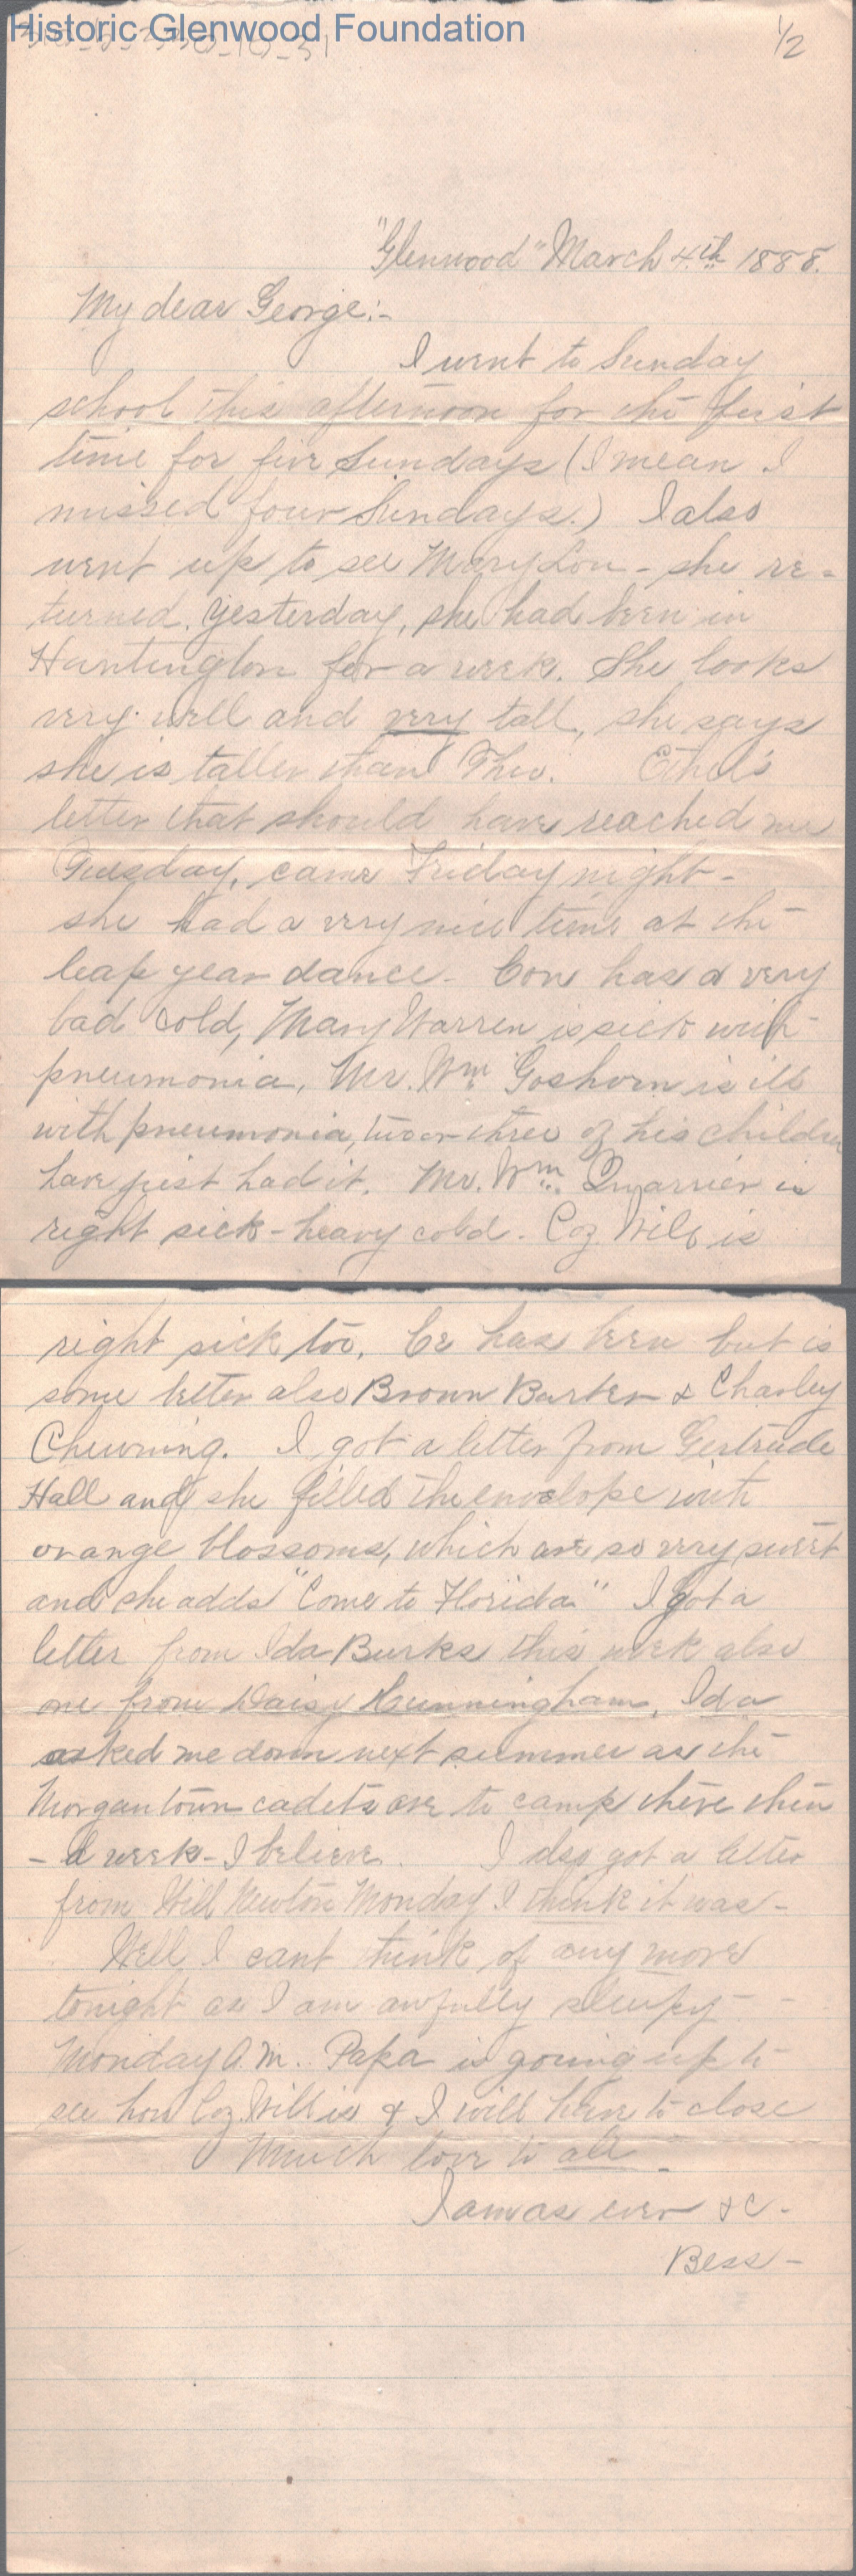 Historic Glenwood Foundation
1/2
"Glenwood" March 4th 1888.
My dear George:-
I went to Sunday
school this afternoon for the first
time for five Sundays (I mean I
missed four Sundays.) I also
went up to see Mary Lou - she re-
turned yesterday, she had been in
Huntington for a week. She looks
very well and very tall, she says
she is taller than Theo. Ethel's
letter that should have reached me
Tuesday, came Friday night -
she had a very nice time at the
leap year dance - Con has a very
bad cold, Mary Warren is sick with
pneumonia, Mr. Wm Goshorn is ill
with pneumonia, two or three of his children
have just had it. Mr. Wm. Quarrier is
right sick - heavy cold. Coz. Will is
right sick too. Ce has been but is
some better also Brown Barker & Charley
Chewning. I got a letter from Gertrude
Hall and she filled the envelope with
orange blossoms, which are so very sweet
and she adds "Come to Florida" I got a
letter from Ida Burks this week also
one from Daisy Cunningham, Ida
asked me down next summer as the
Morgantown cadets are to camp there then
- a week - I believe. I also got a letter
from Will Newton Monday I think it was -
Well I cant think of any more
tonight as I am awfully sleepy - -
Monday A.M. Papa is going up to
see how Coz. Will is & I will have to close
Much love to all -
I am as ever &c -
Bess -